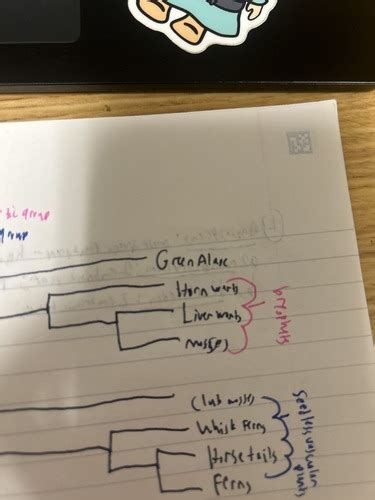 group
Green Alage
Hornworts
Liverworts
mosses
bryophytes
Club mosses
Whisk Ferns
Horsetails
Ferns
Seedless vascular
plants